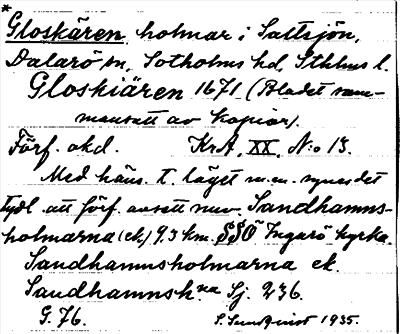 *
Gloskären, holmar i Saltsjön,
Dalarö sn, Sotholms hd, Sthlms l.
Gloskiären 1671 (Bladet sam-
mansatt av kopior).
Förf. okd. KrA, XX, N:o 13.
Med häns. t. läget m.m. synes det
tydl. att förf. avsett nuv. Sandhamns-
holmarna (ek.) 9,3 km. SSO Ingarö kyrka.
Sandhamnsholmarna ek.
Sandhamnsh.na Sj. 236.
G. 76. S. Sundquist 1935.